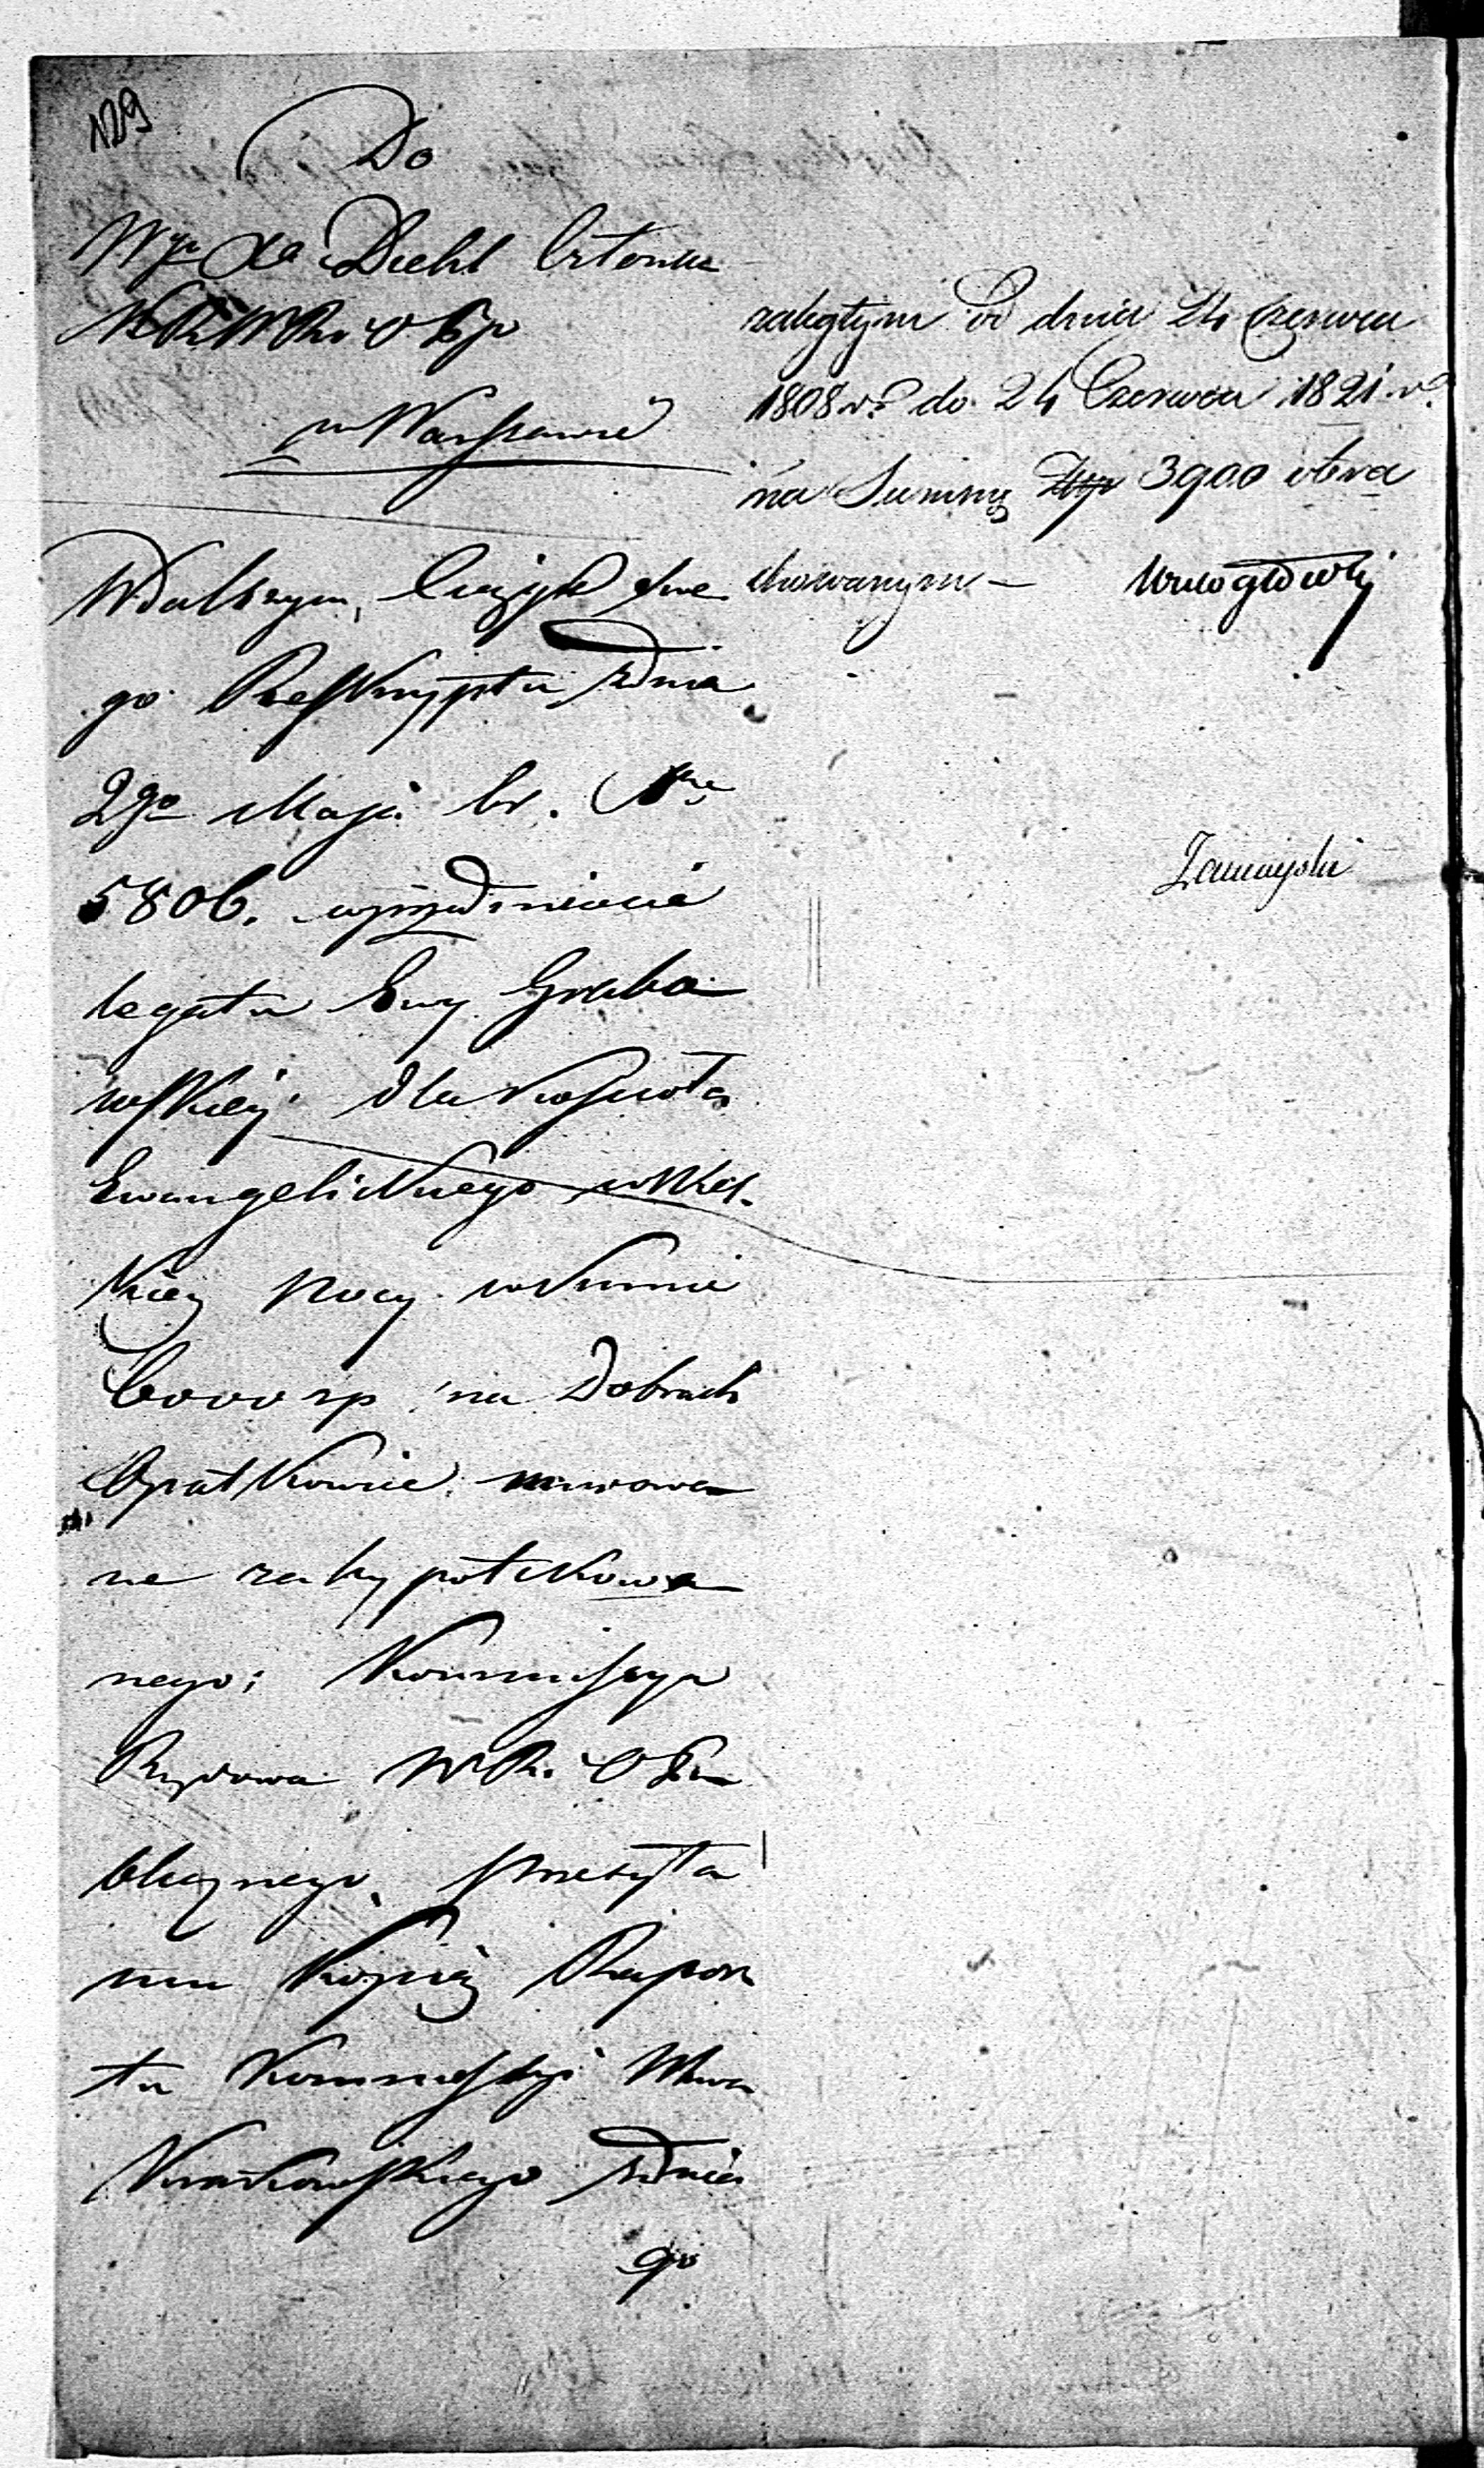 129
Do
Wgo de Diehl Członka
w Warszawie
Wdalszym Ciągu Swe
go Reskryptu z Dnia
2go Maja br. Nro
5806. względnie
legatu Ewy Graba
wskiey dla kościoła
Ewangelickiego w Wiel
kiey nocy w Summie
6000 zp na Dobrach
Opatkowice
ne zahypotekowa
nego; Kommissya
Rządowa W.R. O Pu
blicznego przesyła
mu kopią Rapor
tu Kommissyi Wwa
Krakowskiego z Dnia
9go
zaległym od dnia 24 Czerwca
1808 r. do 24 Czerwca 1821 r.
na Summę Złp 3900 obra
chowanym —
Wielogłowski
Zamoyski